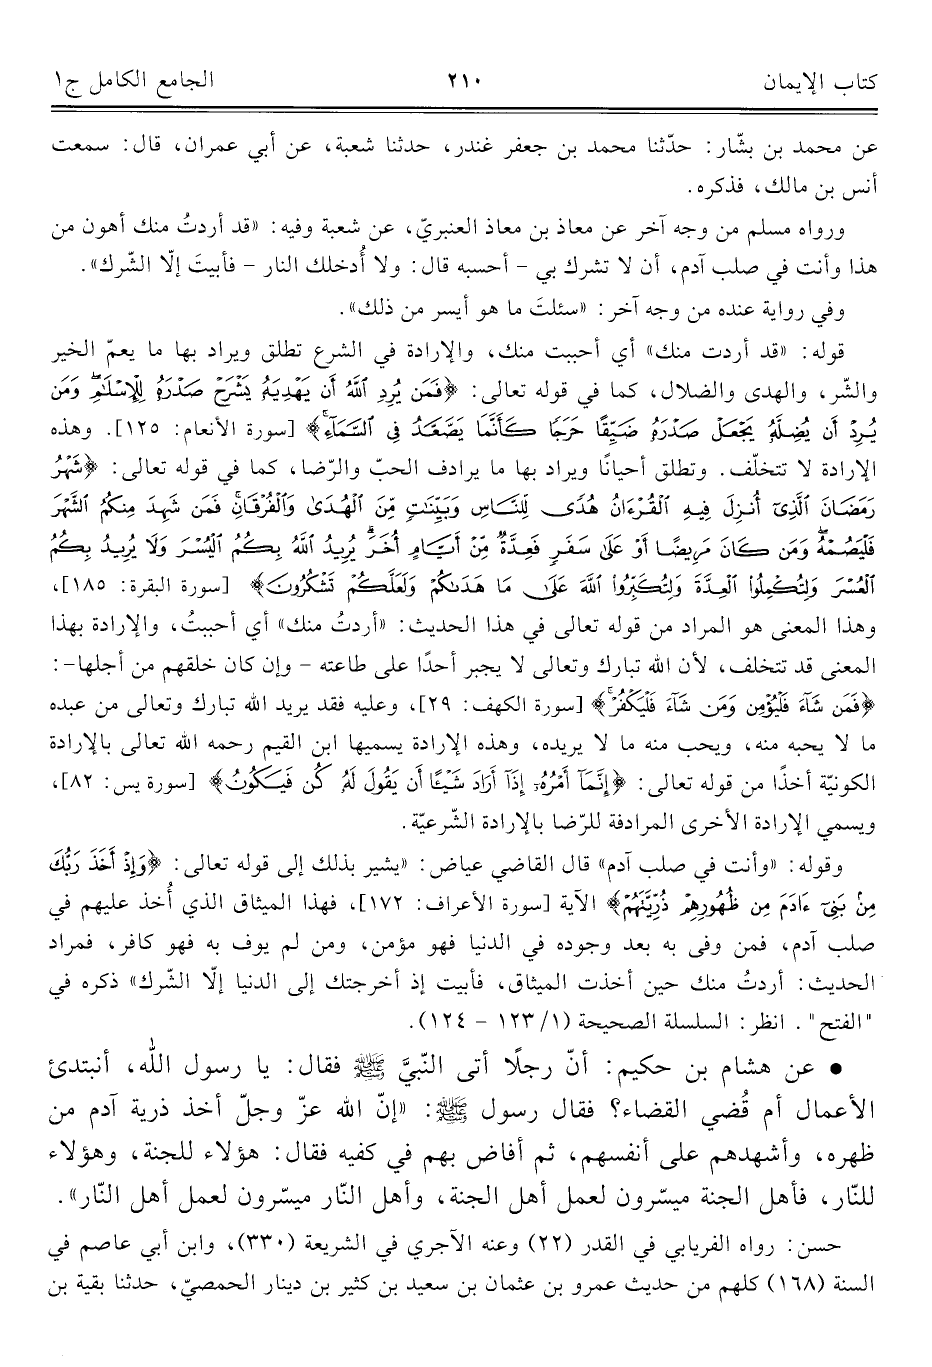 كتاب الإيمان ٢١٠ الجامع الكامل ج١
عن محمد بن بشّار: حدّثنا محمد بن جعفر غندر، حدثنا شعبة، عن أبي عمران، قال: سمعت
أنس بن مالك، فذكره.
ورواه مسلم من وجه آخر عن معاذ بن معاذ العنبريّ، عن شعبة وفيه: «قد أردتُ منك أهون من
هذا وأنت في صلب آدم، أن لا تشرك بي - أحسبه قال: ولا أُدخلك النار - فأبيتَ إلّا الشّرك».
وفي رواية عنده من وجه آخر: «سئلتَ ما هو أيسر من ذلك».
قوله: «قد أردت منك» أي أحببت منك، والإرادة في الشرع تطلق ويراد بها ما يعمّ الخير
والشّر، والهدى والضلال، كما في قوله تعالى: ﴿فَمَن يُرِدِ ٱللَّهُ أَن يَهۡدِيَهُۥ يَشۡرَحۡ صَدۡرَهُۥ لِلۡإِسۡلَٰمِۖ وَمَن
يُرِدۡ أَن يُضِلَّهُۥ يَجۡعَلۡ صَدۡرَهُۥ ضَيِّقًا حَرَجٗا كَأَنَّمَا يَصَّعَّدُ فِي ٱلسَّمَآءِۚ﴾ [سورة الأنعام: ١٢٥]. وهذه
الإرادة لا تتخلّف. وتطلق أحيانًا ويراد بها ما يرادف الحبّ والرّضا، كما في قوله تعالى: ﴿شَهۡرُ
رَمَضَانَ ٱلَّذِيٓ أُنزِلَ فِيهِ ٱلۡقُرۡءَانُ هُدٗى لِّلنَّاسِ وَبَيِّنَٰتٖ مِّنَ ٱلۡهُدَىٰ وَٱلۡفُرۡقَانِۚ فَمَن شَهِدَ مِنكُمُ ٱلشَّهۡرَ
فَلۡيَصُمۡهُۖ وَمَن كَانَ مَرِيضًا أَوۡ عَلَىٰ سَفَرٖ فَعِدَّةٞ مِّنۡ أَيَّامٍ أُخَرَۗ يُرِيدُ ٱللَّهُ بِكُمُ ٱلۡيُسۡرَ وَلَا يُرِيدُ بِكُمُ
ٱلۡعُسۡرَ وَلِتُكۡمِلُواْ ٱلۡعِدَّةَ وَلِتُكَبِّرُواْ ٱللَّهَ عَلَىٰ مَا هَدَىٰكُمۡ وَلَعَلَّكُمۡ تَشۡكُرُونَ﴾ [سورة البقرة: ١٨٥]،
وهذا المعنى هو المراد من قوله تعالى في هذا الحديث: «أردتُ منك» أي أحببتُ، والإرادة بهذا
المعنى قد تتخلف، لأن الله تبارك وتعالى لا يجبر أحدًا على طاعته - وإن كان خلقهم من أجلها-:
﴿فَمَن شَآءَ فَلۡيُؤۡمِن وَمَن شَآءَ فَلۡيَكۡفُرۡۚ﴾ [سورة الكهف: ٢٩]، وعليه فقد يريد الله تبارك وتعالى من عبده
ما لا يحبه منه، ويحب منه ما لا يريده، وهذه الإرادة يسميها ابن القيم رحمه الله تعالى بالإرادة
الكونيّة أخذًا من قوله تعالى: ﴿إِنَّمَآ أَمۡرُهُۥٓ إِذَآ أَرَادَ شَيۡـًٔا أَن يَقُولَ لَهُۥ كُن فَيَكُونُ﴾ [سورة يس: ٨٢]،
ويسمي الإرادة الأخرى المرادفة للرّضا بالإرادة الشّرعيّة.
وقوله: «وأنت في صلب آدم» قال القاضي عياض: «يشير بذلك إلى قوله تعالى: ﴿وَإِذۡ أَخَذَ رَبُّكَ
مِنۢ بَنِيٓ ءَادَمَ مِن ظُهُورِهِمۡ ذُرِّيَّتَهُمۡ﴾ الآية [سورة الأعراف: ١٧٢]، فهذا الميثاق الذي أُخذ عليهم في
صلب آدم، فمن وفى به بعد وجوده في الدنيا فهو مؤمن، ومن لم يوف به فهو كافر، فمراد
الحديث: أردتُ منك حين أخذت الميثاق، فأبيت إذ أخرجتك إلى الدنيا إلّا الشّرك» ذكره في
"الفتح". انظر: السلسلة الصحيحة (١/ ١٢٣ - ١٢٤).
• عن هشام بن حكيم: أنّ رجلًا أتى النّبيَّ ﷺ فقال: يا رسول الله، أنبتدئ
الأعمال أم قُضي القضاء؟ فقال رسول ﷺ: «إنّ الله عزّ وجلّ أخذ ذرية آدم من
ظهره، وأشهدهم على أنفسهم، ثم أفاض بهم في كفيه فقال: هؤلاء للجنة، وهؤلاء
للنّار، فأهل الجنة ميسّرون لعمل أهل الجنة، وأهل النّار ميسّرون لعمل أهل النّار».
حسن: رواه الفريابي في القدر (٢٢) وعنه الآجري في الشريعة (٣٣٠)، وابن أبي عاصم في
السنة (١٦٨) كلهم من حديث عمرو بن عثمان بن سعيد بن كثير بن دينار الحمصيّ، حدثنا بقية بن